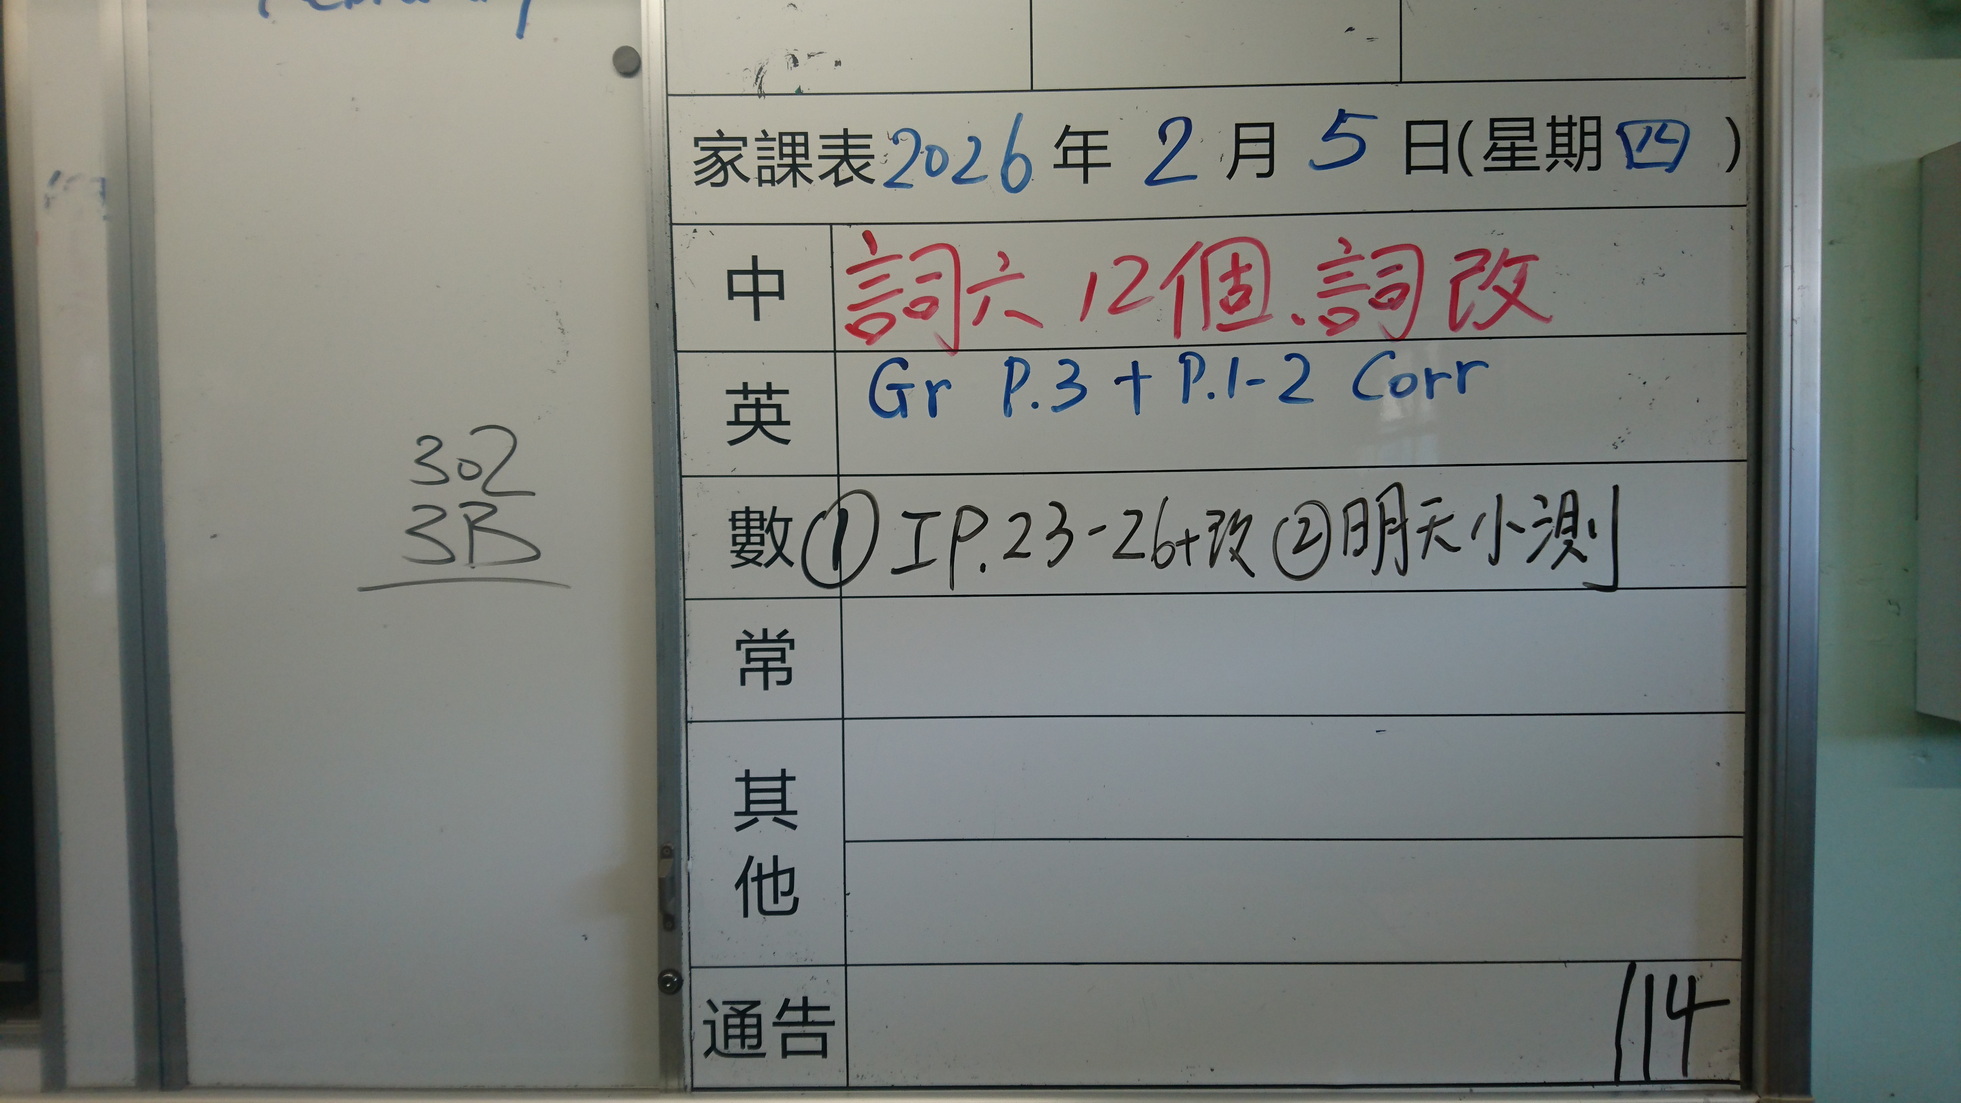 302
3B
家課表2026年2月5日(星期四)
中 詞六12個、詞改
英 Gr P.3 + P.1-2 Corr
數 ① IP.23-26+改 ②明天小測
常
其他
通告 114